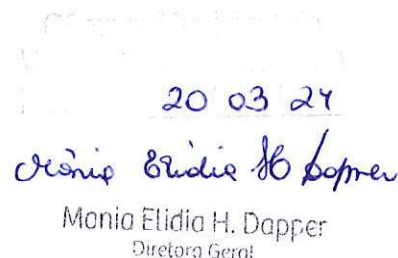 20 03 24
Mônia Elidia H Dapper
Monia Elidia H. Dapper
Diretora Geral